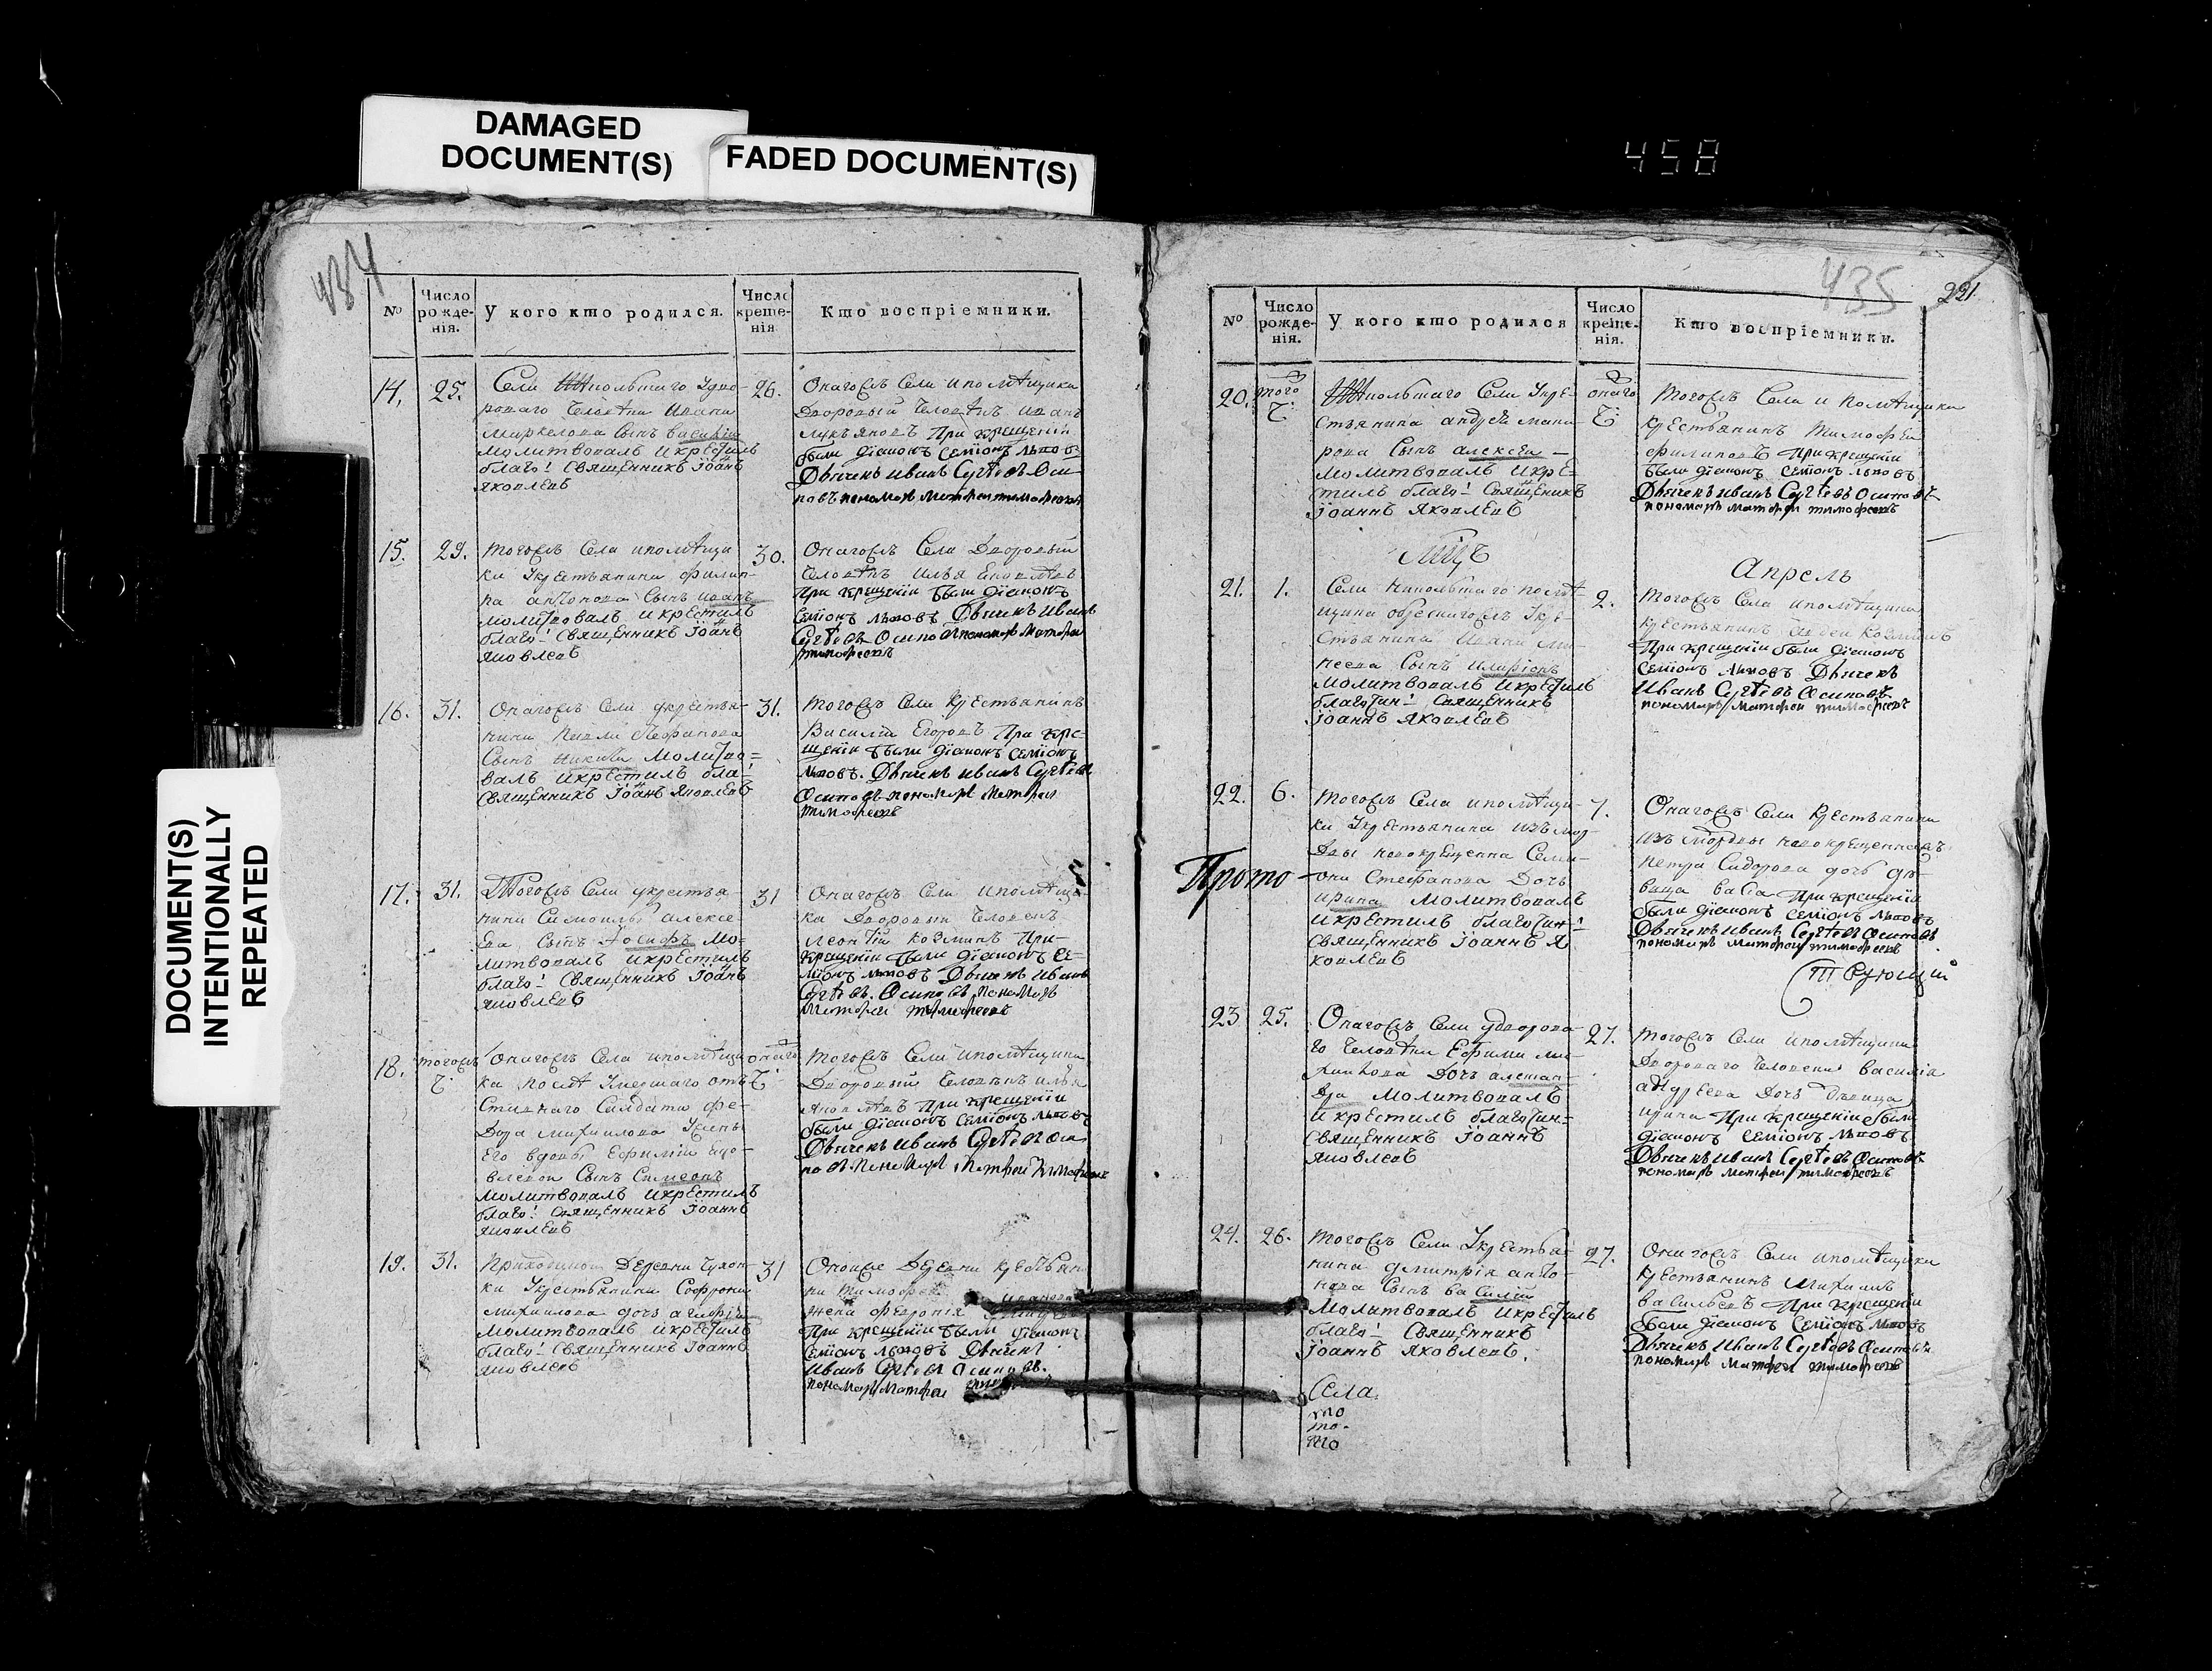 DAMAGED
DOCUMENT(S)
FADED DOCUMENT(S)
458
DOCUMENT(S)
INTENTIONALLY
REPEATED
434
№
Число рожде-нія.
У кого кто родился.
Число креще-нія
Кто воспріемники.
14.
25.
Села Никольшаго Удво-
роваго человѣка Ивана
Маркелова Сынъ василій
молитвовалъ и крестилъ
благо! Священникъ Іоаннъ
яковлевъ
26.
Онагожъ Села и помѣщика
Дворовый Человѣкъ иванъ
лукъяновъ При крещеніи
были діаконъ Семіонъ львовъ
Дьячекъ иванъ Сергѣевъ Оси
повъ пономарь матфей тимофеевъ
15.
29.
тогожъ Села и помѣщи
ка Укрестьянина филип-
па антонова Сынъ иванъ
молитвовалъ и крестилъ
благо! Священникъ Іоаннъ
яковлевъ
30.
Онагожъ Села Дворовый
человѣкъ илья
При крещеніи были діаконъ
Семіонъ львовъ Дьячекъ иванъ
Сергѣевъ Осиповъ пономарь матфей
тимофеевъ
16.
31.
Онагожъ Села укрестья-
нина
Сынъ никита молитво=
валъ и крестилъ бла!
Священникъ Іоаннъ Яковлевъ
31.
тогожъ Села крестьянинъ
Василій Егоровъ При кре-
щеніи были діаконъ Семіонъ
львовъ. Дьячекъ иванъ Сергѣевъ
Осиповъ пономарь матфей
тимофеевъ
17.
31.
Тогожъ Села укрестья-
нина Самойлы алексе-
ева Сынъ Іосифъ мо=
литвовалъ и крестилъ
благо! Священникъ Іоаннъ
яковлевъ
31
Онагожъ Села и помѣщи-
ка Дворовый человекъ
леонтій козминъ При-
крещеніи были діаконъ Се-
міонъ львовъ Дьячекъ иванъ
Сергѣевъ. Осиповъ пономарь
матфей тимофеевъ
18.
тогожъ ч:
Онагожъ Села и помѣщи
ка послѣ Умершаго отъ
Ставнаго Салдата фе-
Дора михайлова Жены
Его вдовы Ефиміи
Сынъ Симеонъ
молитвовалъ и крестилъ
благо! Священникъ Іоаннъ
яковлевъ
онаго ч:
тогожъ Села и помѣщика
Дворовый человѣкъ илья
При крещеніи
были діаконъ Семіонъ львовъ
Дьячекъ иванъ Сергѣевъ Оси
повъ Пономарь Матфей тимофеевъ
19.
31.
Приходиной Деревни
ки Укрестьянина Софрона
михайлова дочь
молитвовалъ и крестилъ
благо! Священникъ Іоаннъ
яковлевъ
31
Оноиже Деревни крестьян
на тимофея иванова
жена февронія
При крещеніи были діаконъ
Семіонъ львовъ Дьячекъ
Иванъ Сергѣевъ Осиповъ.
пономарь Матфей
435
221.
№
Число рожде-нія.
У кого кто родился
Число креще-нія.
Кто воспріемники.
20.
того ч:
Никольшаго Села Укре-
стьянина андрея мака-
рова Сынъ алексеи —
молитвовалъ и кре=
тилъ благо! Священникъ
Іоаннъ Яковлевъ
онаго ч:
Тогожъ Села и Помѣщика
крестьянинъ тимофеи
филиповъ При крещеніи
были діаконъ Семіонъ львовъ
Дьячекъ иванъ Сергѣевъ Осиповъ
пономарь матфей тимофеевъ
Мцъ
Апрель
21.
1.
Села Никольшаго помѣ-
щика Укре-
Стьянина Ивана
неева Сынъ иларіонъ
молитвовалъ и крестилъ
благочин! Священникъ
Іоаннъ Яковлевъ
2.
тогожъ Села и помѣщика
крестьянинъ козминъ
При крещеніи были діаконъ
Семіонъ львовъ Дьячекъ
Иванъ Сергѣевъ Осиповъ.
пономарь матфей тимофеевъ
22.
6.
тогожъ Села и помѣщи-
ка Укрестьянина изъ мор-
двы новокрещенна Семи-
она Стефанова Дочь
ирина молитвовалъ
и крестилъ благочин!
Священникъ Іоаннъ Я
ковлевъ
7.
Онагожъ Села крестьянина
изъ мордвы новокрещенна
петра Сидорова дочь дѣ-
вица васса При крещеніи
были діаконъ Семіонъ львовъ
Дьячекъ иванъ Сергѣевъ Осиповъ
пономарь матфей тимофеевъ
Прото-
23
25.
Онагожъ Села удворова-
го человѣка Ефима ма-
Дочь алексан-
дра молитвовалъ
и крестилъ благочин=
Священникъ Іоаннъ
яковлевъ
27.
тогожъ Села и помѣщика
Двороваго человека василія
андреева Дочь Дѣвица
ирина При крещеніи были
діаконъ Семіонъ львовъ
Дьячекъ иванъ Сергѣевъ Осиповъ
пономарь матфей тимофеевъ
24.
26.
тогожъ Села Укрестья-
нина димитрія анто-
нова Сынъ василій
Молитвовалъ и крестилъ
благо! Священникъ
Іоаннъ Яковлевъ.
27.
Онагожъ Села и помѣщика
крестьянинъ михаилъ
васильевъ При крещеніи
были діаконъ Семіонъ львовъ
Дьячекъ иванъ Сергѣевъ Осиповъ
пономарь матфей тимофеевъ
Села
то
то-
то